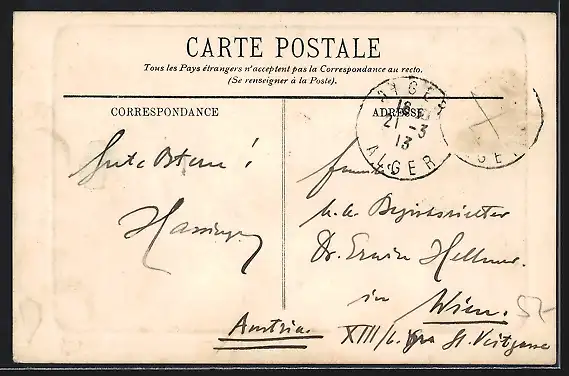 CARTE POSTALE
Tous les Pays étrangers n'acceptent pas la Correspondance au recto.
(Se renseigner à la Poste).
CORRESPONDANCE
ADRESSE
ALGER
16
21 -3
13
ALGER
GER
Gute Ostern!
k.k. Bezirksrichter
Dr. Erwin Hellmer.
in Wien.
57-
Austria.
XIII/6. St. Veitgasse